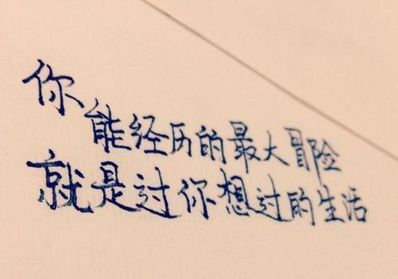 你能经历的最大冒险
就是过你想过的生活